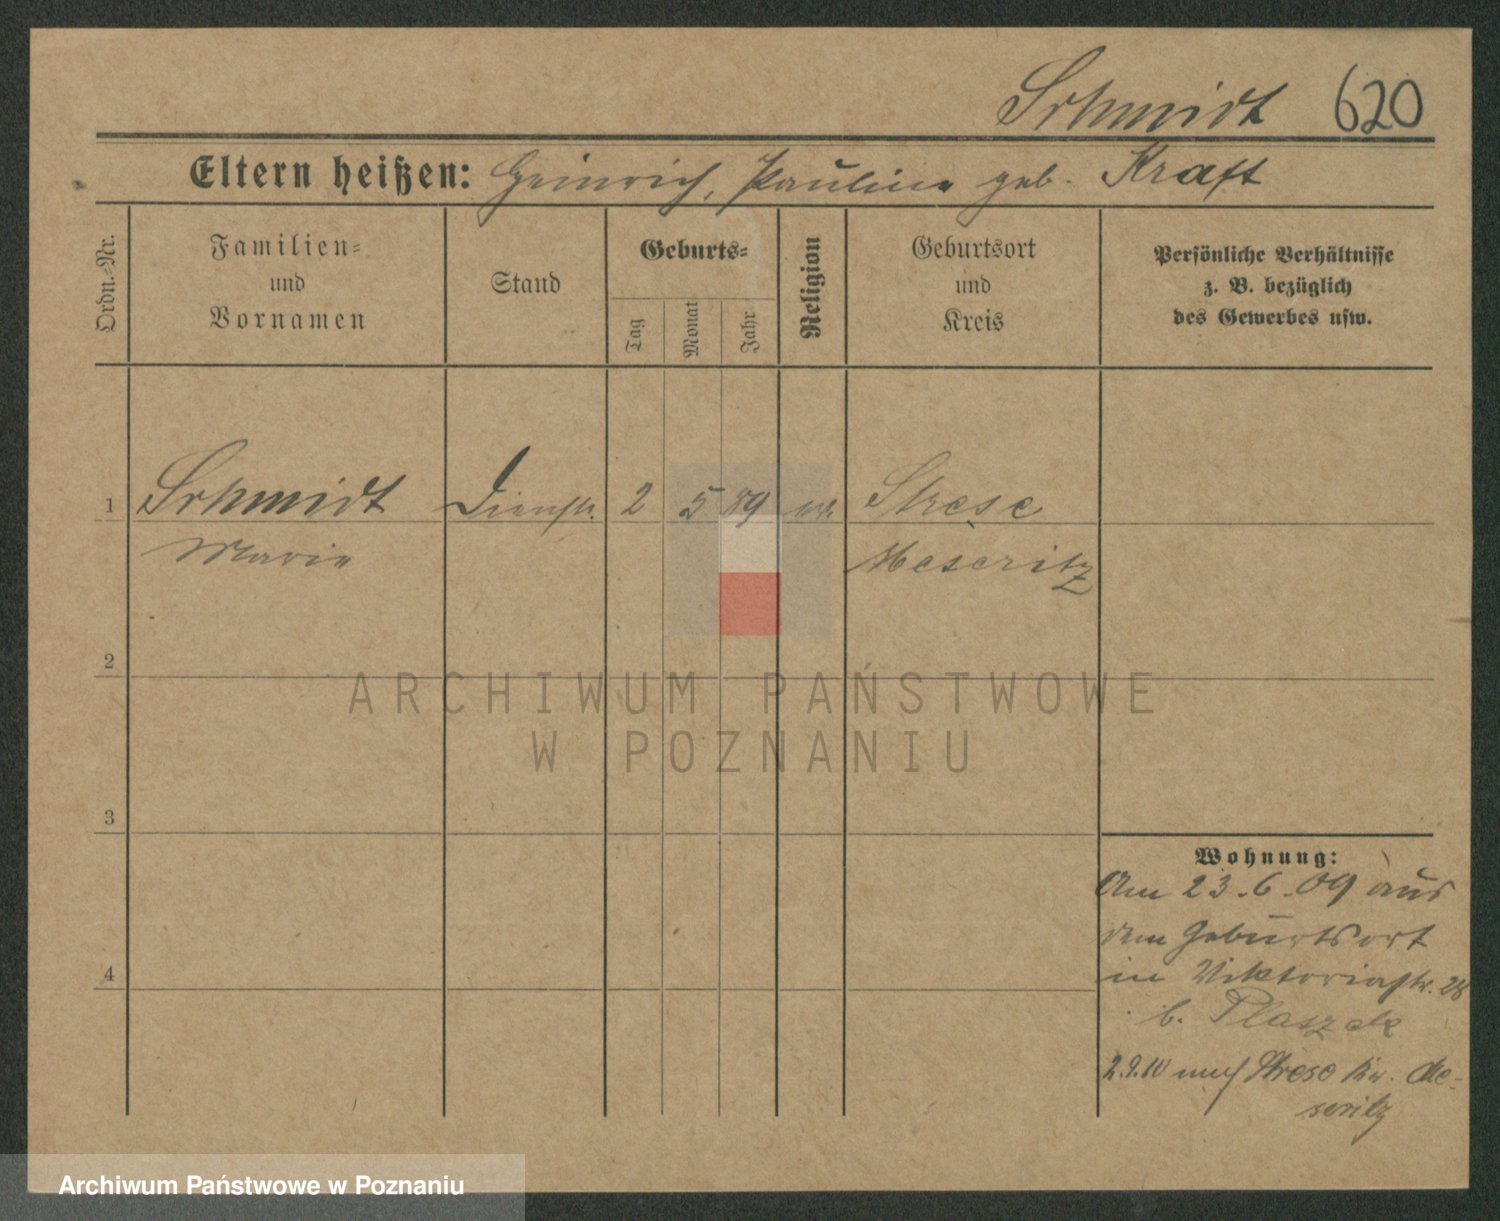 Schmidt 620
Eltern heißen: Heinrich, Pauline geb. Kraft
Ordn.-Nr.
Familien-
und
Vornamen
Stand
Geburts-
Tag
Monat
Jahr
Religion
Geburtsort
und
Kreis
Persönliche Verhältnisse
z. B. bezüglich
des Gewerbes usw.
1 Schmidt Dienstb. 2 5 89 Strese
Marie Meseritz
2
3
4
Wohnung:
Am 23.6.09 aus
dem Geburtsort
in Viktoriastr. 28
b. Plaszek
2.9.10 nach Strese Kr. Me-
seritz
ARCHIWUM PAŃSTWOWE
W POZNANIU
Archiwum Państwowe w Poznaniu